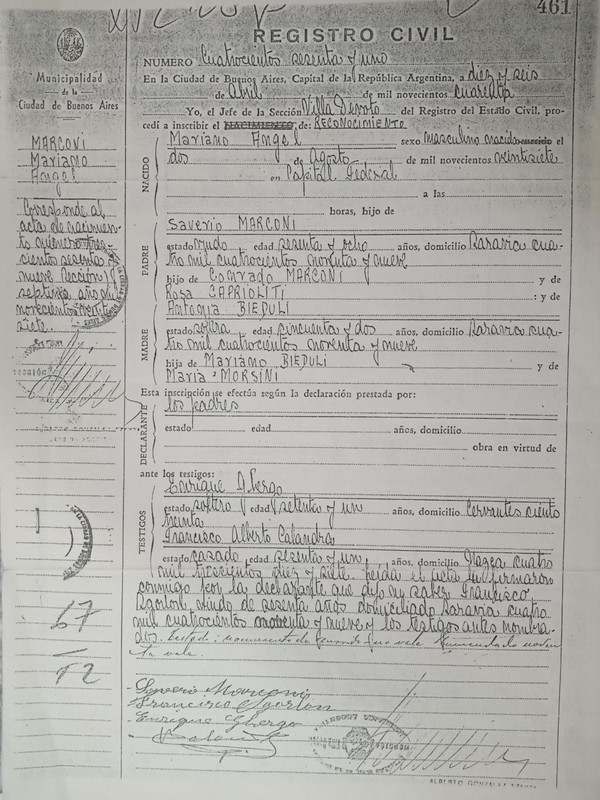 461
REGISTRO CIVIL
Municipalidad
de la
Ciudad de Buenos Aires
MARCONI
Mariano
Angel
Corresponde al
acta de nacimien-
to quinientos tres-
cientos sesenta y
nueve sección
septima año de
novecientos veinti
siete.
67
12
NUMERO Cuatrocientos sesenta y uno
En la Ciudad de Buenos Aires, Capital de la República Argentina, a diez y seis
de Abril de mil novecientos cuarenta
Yo, el Jefe de la Sección Villa Devoto del Registro del Estado Civil, pro-
cedí a inscribir el NACIMIENTO de: RECONOCIMIENTO
NACIDO
Mariano Angel sexo masculino nacido el
dos de Agosto de mil novecientos veintisiete
en Capital Federal
a las
horas, hijo de
PADRE
Saverio MARCONI
estado viudo, edad sesenta y ocho años, domicilio Saravia cua-
tro mil cuatrocientos noventa y nueve
hijo de Conrado MARCONI y de
Rosa CAPRIOLITI : y de
MADRE
Antonia BIEDULI
estado soltera, edad cincuenta y dos años, domicilio Saravia cua-
tro mil cuatrocientos noventa y nueve
hija de Mariano BIEDULI y de
Maria MORSINI
Esta inscripción se efectúa según la declaración prestada por:
DECLARANTE
los padres
estado edad años, domicilio
obra en virtud de
ante los testigos:
TESTIGOS
Enrique
estado soltero edad setenta y un años, domicilio Cervantes ciento
treinta
Francisco Alberto Calandra
estado casado, edad sesenta y un, años, domicilio Nazca cuatro
mil trescientos diez y siete. Leida el acta la firmaron
conmigo por la declarante que dijo no saber Francisco
viudo de sesenta años domiciliado Saravia cuatro
mil cuatrocientos noventa y nueve y los testigos antes nombra-
dos.
vale.
Saverio Marconi
Francisco
Enrique
ALBERTO GONZALEZ